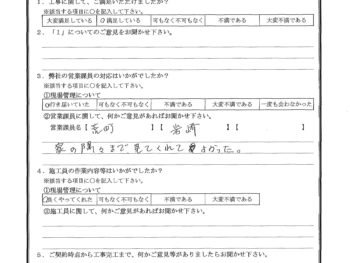 1．工事に関して、ご満足いただけましたか？
※該当する項目に○を記入して下さい。
大変満足している ○満足している 可もなく不可もなく 不満である 大変不満である
2．「1」についてのご意見をお聞かせ下さい。
3．弊社の営業課員の対応はいかがでしたか？
※該当する項目に○を記入して下さい。
①現場管理について
○行き届いていた 可もなく不可もなく 不満である 大変不満である 一度も会わなかった
②営業課員に関して、何かご意見があればお聞かせ下さい。
営業課員名【荒町】【岩崎】
家の隅々まで見てくれてよかった。
4．施工員の作業内容等はいかがでしたか？
※該当する項目に○を記入して下さい。
①現場管理について
○良くやってくれた 可もなく不可もなく 不満である 大変不満である
②施工員に関して、何かご意見があればお聞かせ下さい。
5．ご契約時点から工事完工まで、何かご意見等がありましたらお聞かせ下さい。